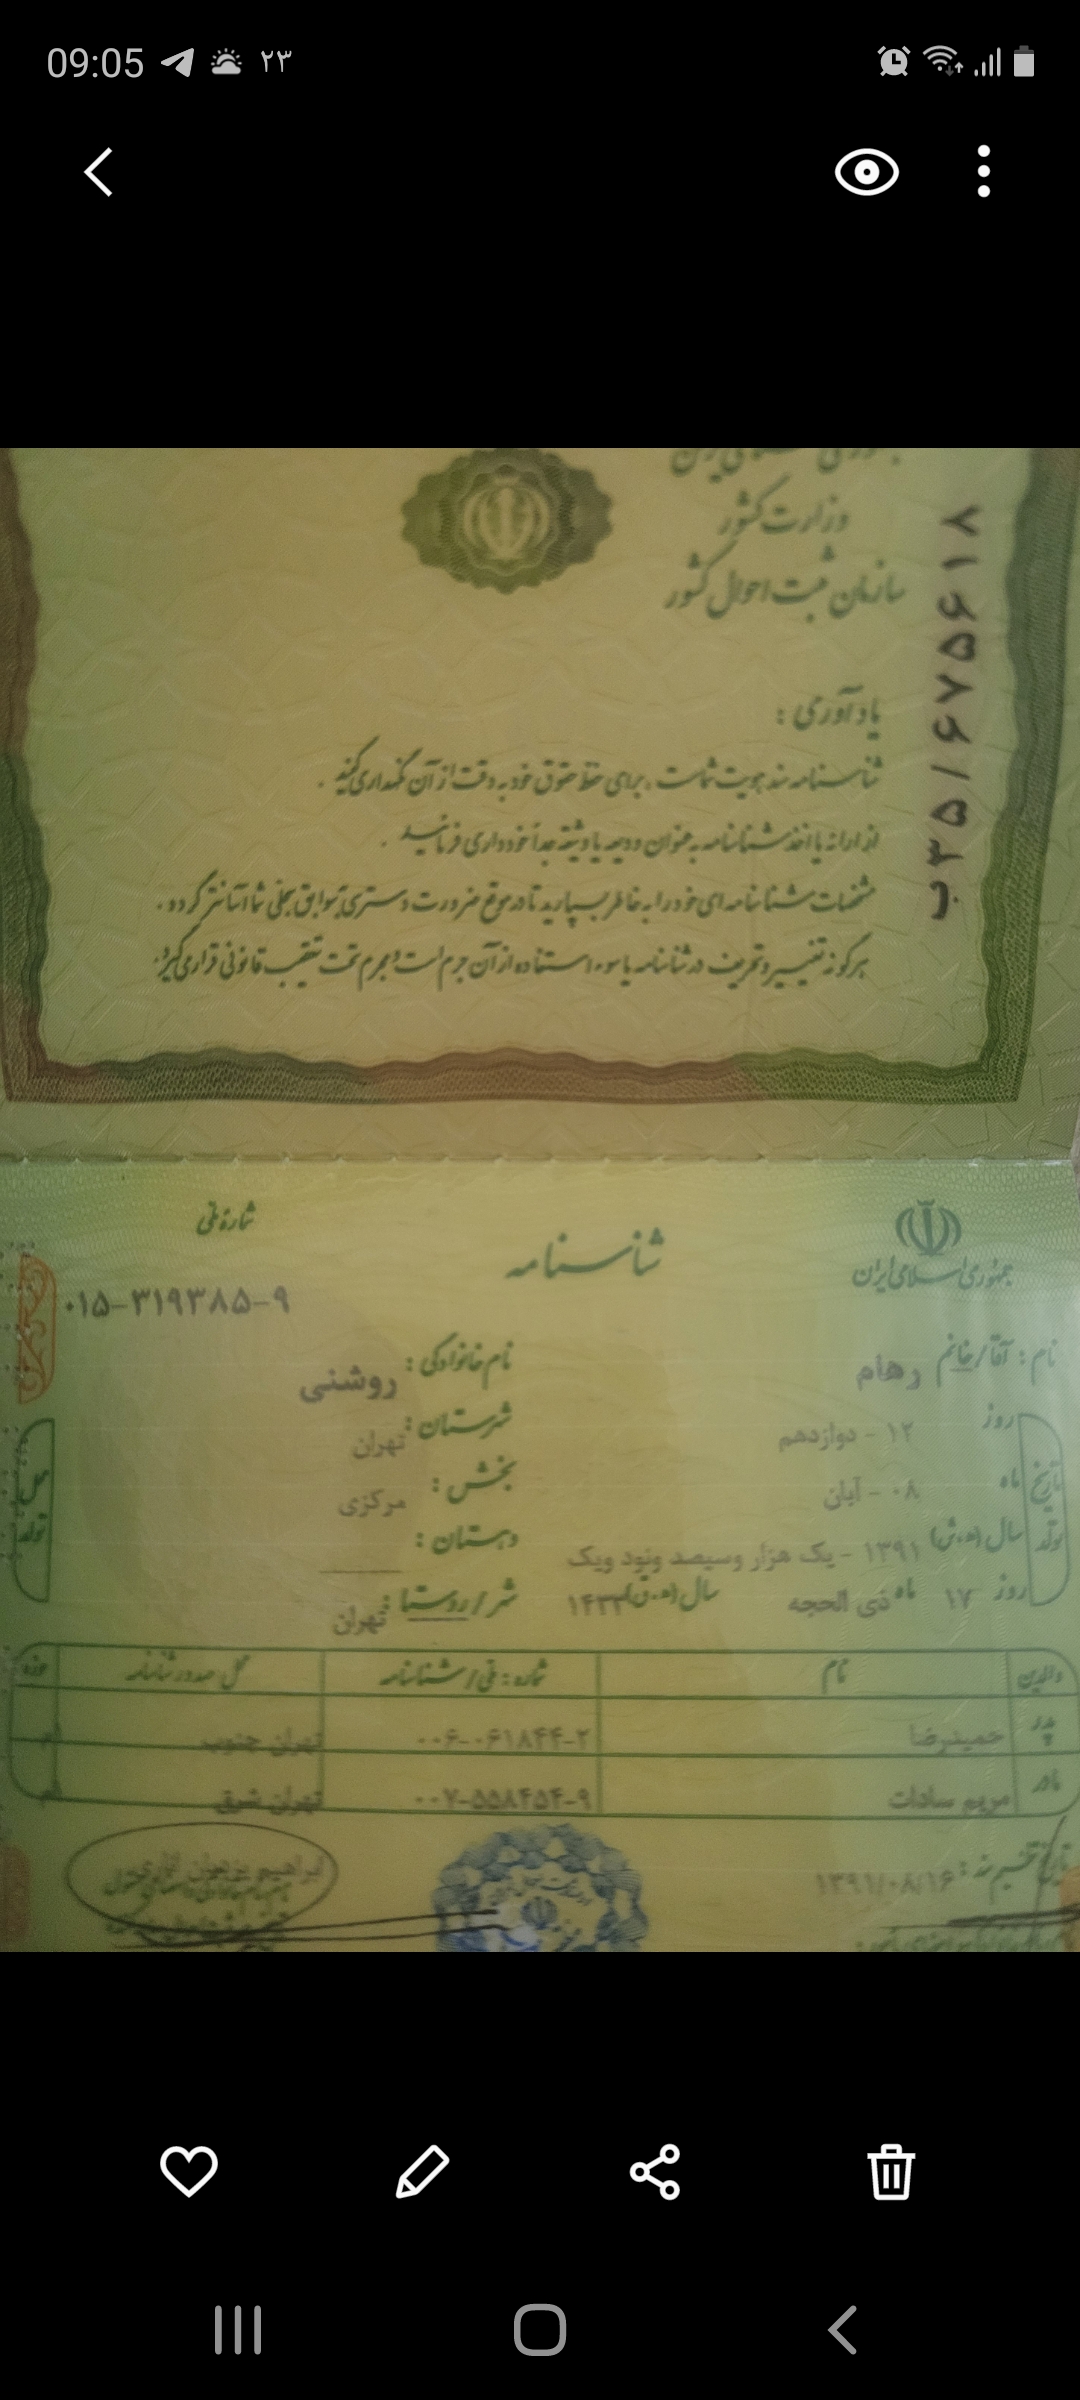 09:05
۲۳
وزارت کشور
سازمان ثبت احوال کشور
یادآوری :
شناسنامه سند هویت شماست ، برای حفظ حقوق خود به دقت از آن نگهداری کنید .
از ارائه یا اخذ شناسنامه به عنوان ودیعه یا وثیقه جداً خودداری فرمائید .
مشخصات شناسنامه ای خود را به خاطر بسپارید تا در موقع ضرورت دسترسی به سوابق سجلی شما آسانتر گردد .
هرگونه تغییر و تحریف در شناسنامه یا سوء استفاده از آن جرم است و مجرم تحت تعقیب قانونی قرار می گیرد.
شماره ملی
شناسنامه
جمهوری اسلامی ایران
۰۱۵-۳۱۹۳۸۵-۹
نام : آقا/خانم رهام
نام خانوادگی : روشنی
تاریخ تولد
روز ۱۲ - دوازدهم
محل تولد
شهرستان : تهران
ماه ۰۸ - آبان
بخش : مرکزی
سال (ه.ش) ۱۳۹۱ - یک هزار وسیصد ونود ویک
دهستان :
روز ۱۷ ماه ذی الحجه سال (ه.ق) ۱۴۳۳
شهر/روستا : تهران
والدین نام شماره : ملی / شناسنامه محل صدور شناسنامه حوزه
پدر حمیدرضا ۰۰۶-۰۶۱۸۴۴-۲ تهران جنوب
مادر مریم سادات ۰۰۷-۵۵۸۴۵۴-۹ تهران شرق
تاریخ تنظیم سند : ۱۳۹۱/۰۸/۱۶